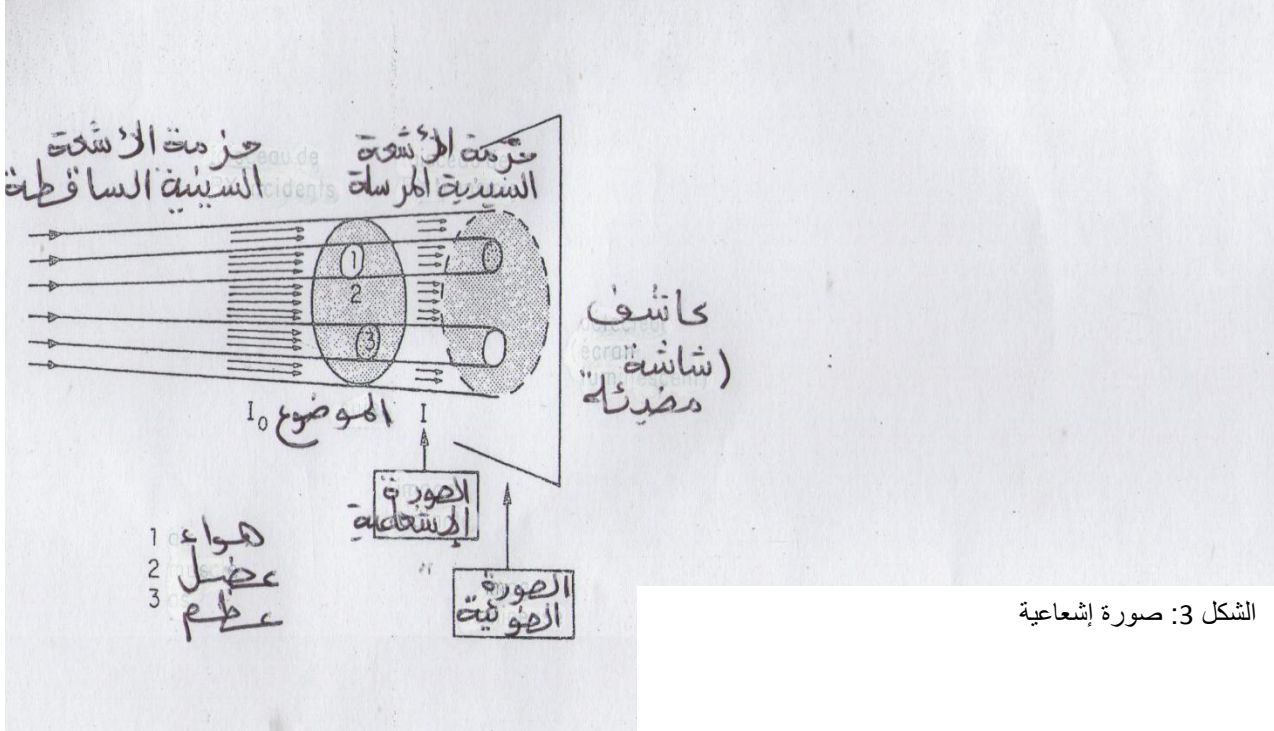 حزمة الأشعة
السينية الساقطة
حزمة الأشعة
السينية المرسلة
1
2
3
كاشف
(شاشة
مضيئة)
I₀
الموضوع
I
الصورة
الإشعاعية
الصورة
الضوئية
1 هواء
2 عضل
3 عظم
الشكل 3: صورة إشعاعية